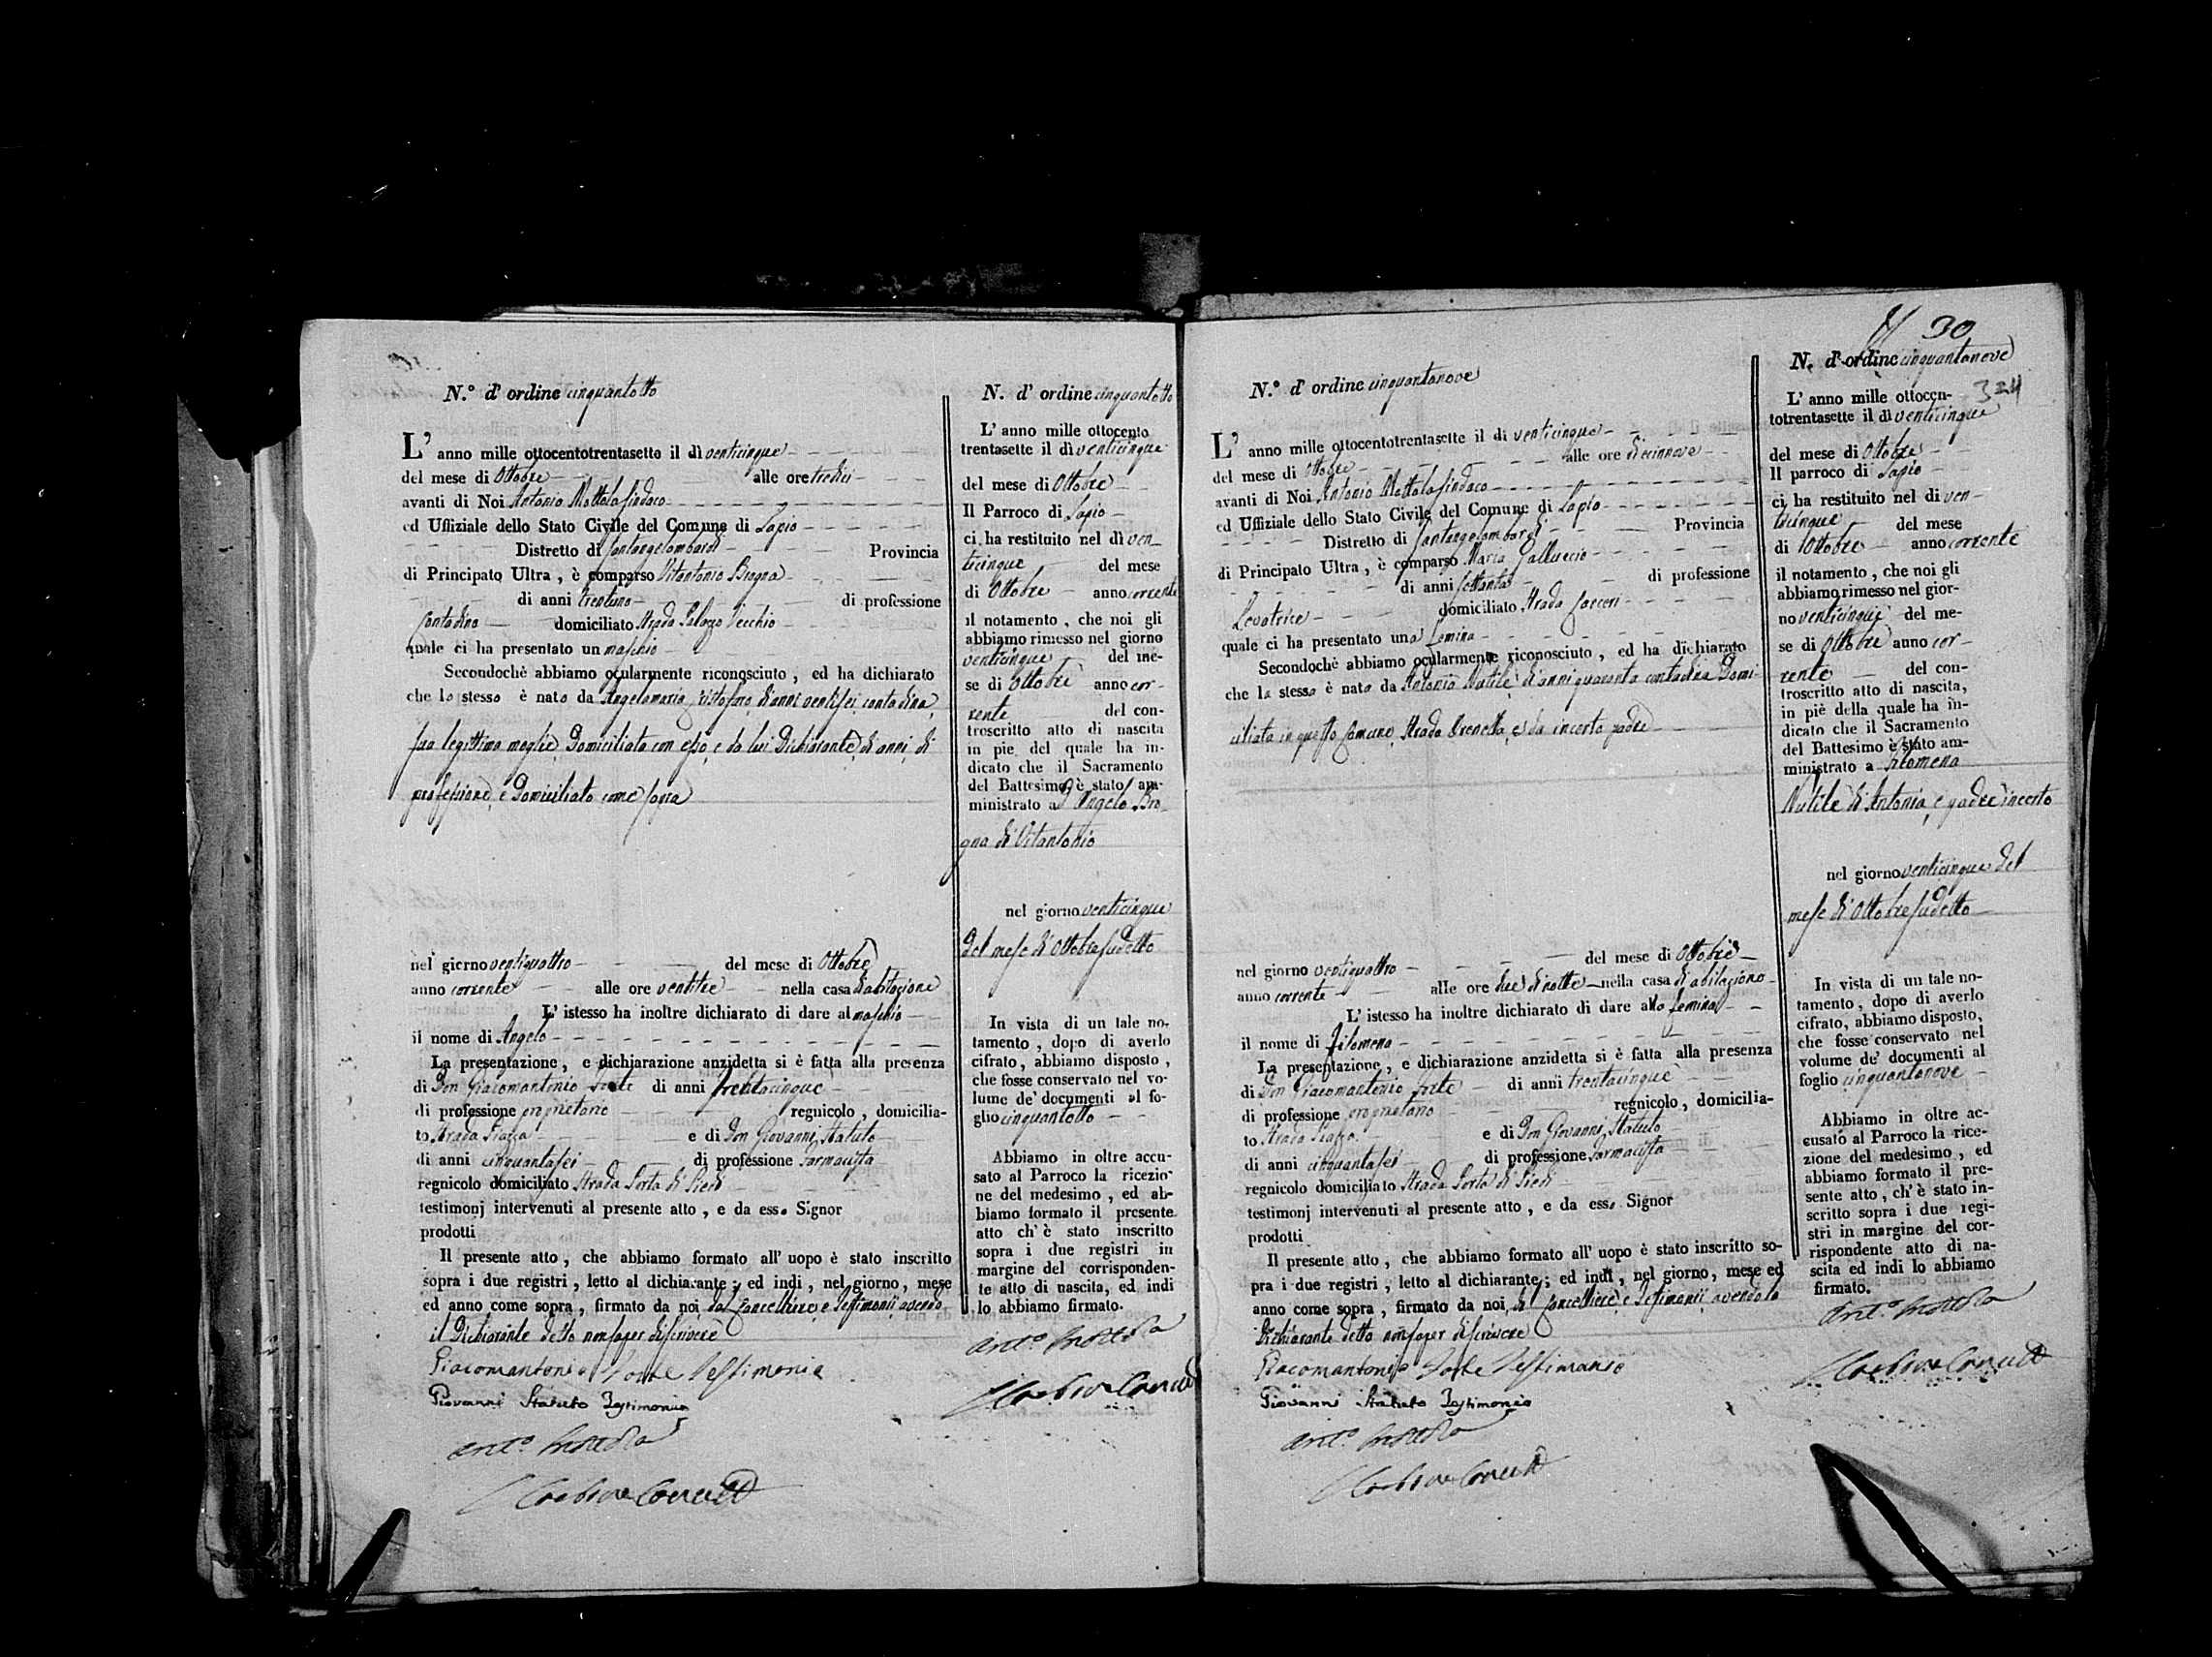 N.° d' ordine cinquantotto
L' anno mille ottocentotrentasette il dì venticinque
del mese di Ottobre alle ore tredici
avanti di Noi Antonio Mottola Sindaco
ed Uffiziale dello Stato Civile del Comune di Lapio
Distretto di Santangelombardi Provincia
di Principato Ultra , è comparso Vitantonio Brogna
di anni trentuno di professione
Contadino domiciliato Strada Palazzo Vecchio
quale ci ha presentato un maschio
Secondochè abbiamo ocularmente riconosciuto , ed ha dichiarato
che lo stesso è nato da Angelamaria Cristofaro, di anni ventisei contadina,
sua legittima moglie, Domiciliata con esso, e da lui Dichiarante, di anni, di
professione, e Domiciliato come sopra
nel giorno ventiquattro del mese di Ottobre
anno corrente alle ore ventitre nella casa d'abitazione
L' istesso ha inoltre dichiarato di dare al maschio
il nome di Angelo
La presentazione , e dichiarazione anzidetta si è fatta alla presenza
di Don Giacomantonio Forte di anni trentacinque
di professione proprietario regnicolo , domicilia-
to Strada Piazza e di Don Giovanni Statuto
di anni cinquantasei di professione Farmacista
regnicolo domiciliato Strada Porta di Piedi
testimonj intervenuti al presente atto , e da esso Signor
prodotti
Il presente atto , che abbiamo formato all' uopo è stato inscritto
sopra i due registri , letto al dichiarante ; ed indi , nel giorno , mese
ed anno come sopra , firmato da noi dal Cancelliere, e Testimonii avendo
il Dichiarante detto non saper di scrivere
Giacomantonio Forte Testimonio
Giovanni Statuto Testimonio
Ant.° Mottola
N. d' ordine cinquantotto
L' anno mille ottocento
trentasette il dì venticinque
del mese di Ottobre
Il Parroco di Lapio
ci ha restituito nel dì ven-
ticinque del mese
di Ottobre anno corrente
il notamento , che noi gli
abbiamo rimesso nel giorno
venticinque del me-
se di Ottobre anno cor-
rente del con-
troscritto atto di nascita
in pie del quale ha in-
dicato che il Sacramento
del Battesimo è stato am-
ministrato a D'Angelo Bro-
gna di Vitantonio
nel giorno venticinque
del mese di Ottobre sudetto
In vista di un tale no-
tamento , dopo di averlo
cifrato , abbiamo disposto ,
che fosse conservato nel vo-
lume de' documenti al fo-
glio cinquantotto
Abbiamo in oltre accu-
sato al Parroco la ricezio-
ne del medesimo , ed ab-
biamo formato il presente
atto ch' è stato inscritto
sopra i due registri in
margine del corrisponden-
te atto di nascita, ed indi
lo abbiamo firmato.
Ant.° Mottola
N.° d' ordine cinquantanove
L' anno mille ottocentotrentasette il dì venticinque
del mese di Ottobre alle ore diecinnove
avanti di Noi Antonio Mottola Sindaco
ed Uffiziale dello Stato Civile del Comune di Lapio
Distretto di Santangelombardi Provincia
di Principato Ultra , è comparso Maria Galluccio
di anni settanta di professione
Levatrice domiciliato Strada
quale ci ha presentato una femina
Secondochè abbiamo ocularmente riconosciuto , ed ha dichiarato
che la stessa è nata da Antonia Nutile, di anni quaranta contadina Domi-
ciliata in questo Comune, Strada e da incerto padre
nel giorno ventiquattro del mese di Ottobre
anno corrente alle ore due di notte nella casa di abitazione
L' istesso ha inoltre dichiarato di dare alla femina
il nome di Filomena
La presentazione , e dichiarazione anzidetta si è fatta alla presenza
di Don Giacomantonio Forte di anni trentacinque
di professione proprietario regnicolo , domicilia-
to Strada Piazza e di Don Giovanni Statuto
di anni cinquantasei di professione Farmacista
regnicolo domiciliato Strada Porta di Piedi
testimonj intervenuti al presente atto , e da esso Signor
prodotti
Il presente atto , che abbiamo formato all' uopo è stato inscritto so-
pra i due registri , letto al dichiarante ; ed indi , nel giorno , mese ed
anno come sopra , firmato da noi, dal Cancelliere, e Testimonii avendo la
Dichiarante detto non saper di scrivere
Giacomantonio Forte Testimonio
Giovanni Statuto Testimonio
Ant.° Mottola
30
N. d' ordine cinquantanove
324
L' anno mille ottocen-
totrentasette il dì venticinque
del mese di Ottobre
Il parroco di Lapio
ci ha restituito nel dì ven-
ticinque del mese
di Ottobre anno corrente
il notamento , che noi gli
abbiamo rimesso nel gior-
no venticinque del me-
se di Ottobre anno cor-
rente del con-
troscritto atto di nascita,
in piè della quale ha in-
dicato che il Sacramento
del Battesimo è stato am-
ministrato a Filomena
Nutile di Antonia, e padre incerto
nel giorno venticinque del
mese di Ottobre sudetto
In vista di un tale no-
tamento , dopo di averlo
cifrato, abbiamo disposto,
che fosse conservato nel
volume de' documenti al
foglio cinquantanove
Abbiamo in oltre ac-
cusato al Parroco la rice-
zione del medesimo , ed
abbiamo formato il pre-
sente atto , ch' è stato in-
scritto sopra i due regi-
stri in margine del cor-
rispondente atto di na-
scita ed indi lo abbiamo
firmato.
Ant.° Mottola